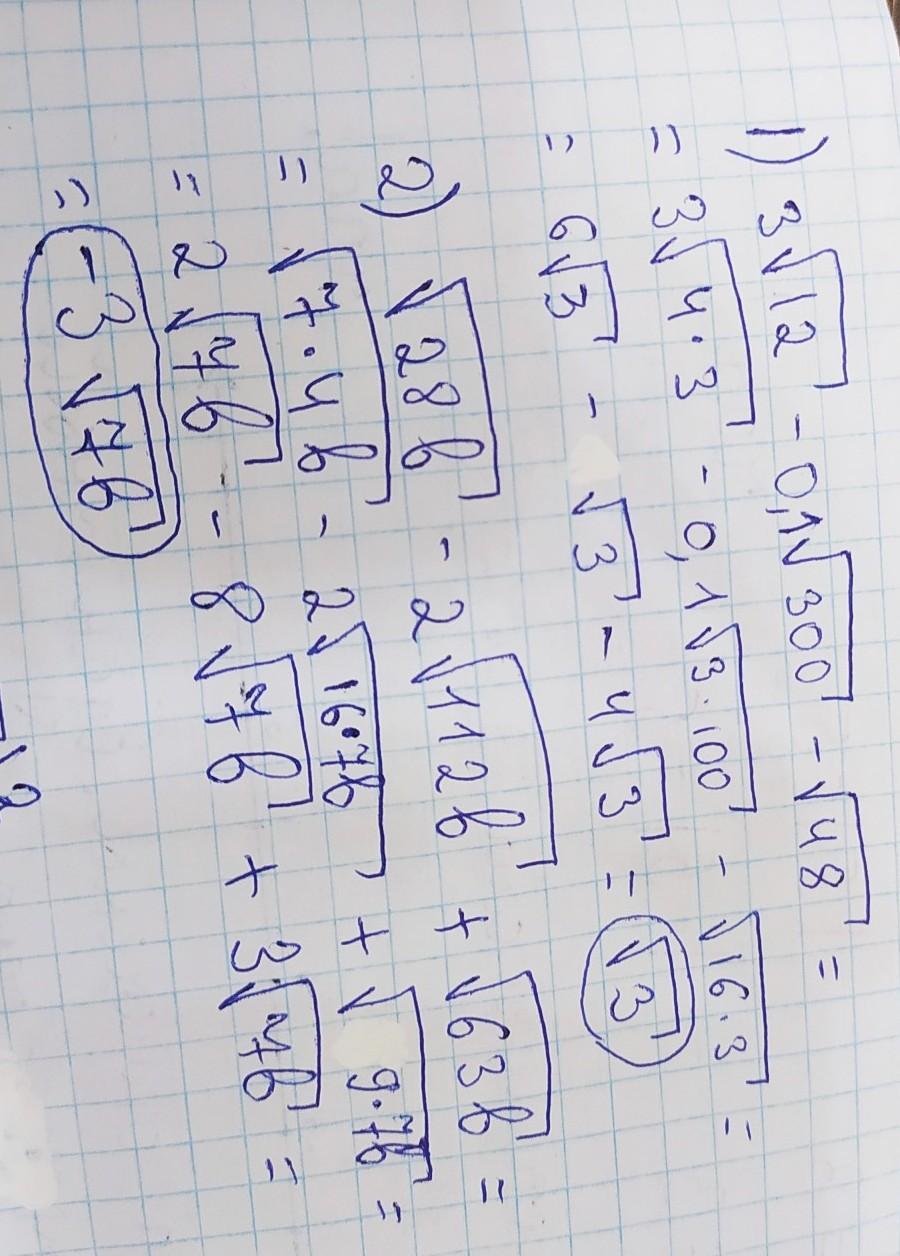 1) 3√12 - 0,1√300 - √48 =
= 3√4·3 - 0,1√3·100 - √16·3 =
= 6√3 - √3 - 4√3 = √3
2) √28b - 2√112b + √63b =
= √7·4b - 2√16·7b + √9·7b =
= 2√7b - 8√7b + 3√7b =
= -3√7b